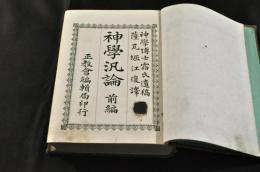 神學博士雷氏遺稿
薩瓦堀江復譯
神學汎論 前編
正教會編輯局印行